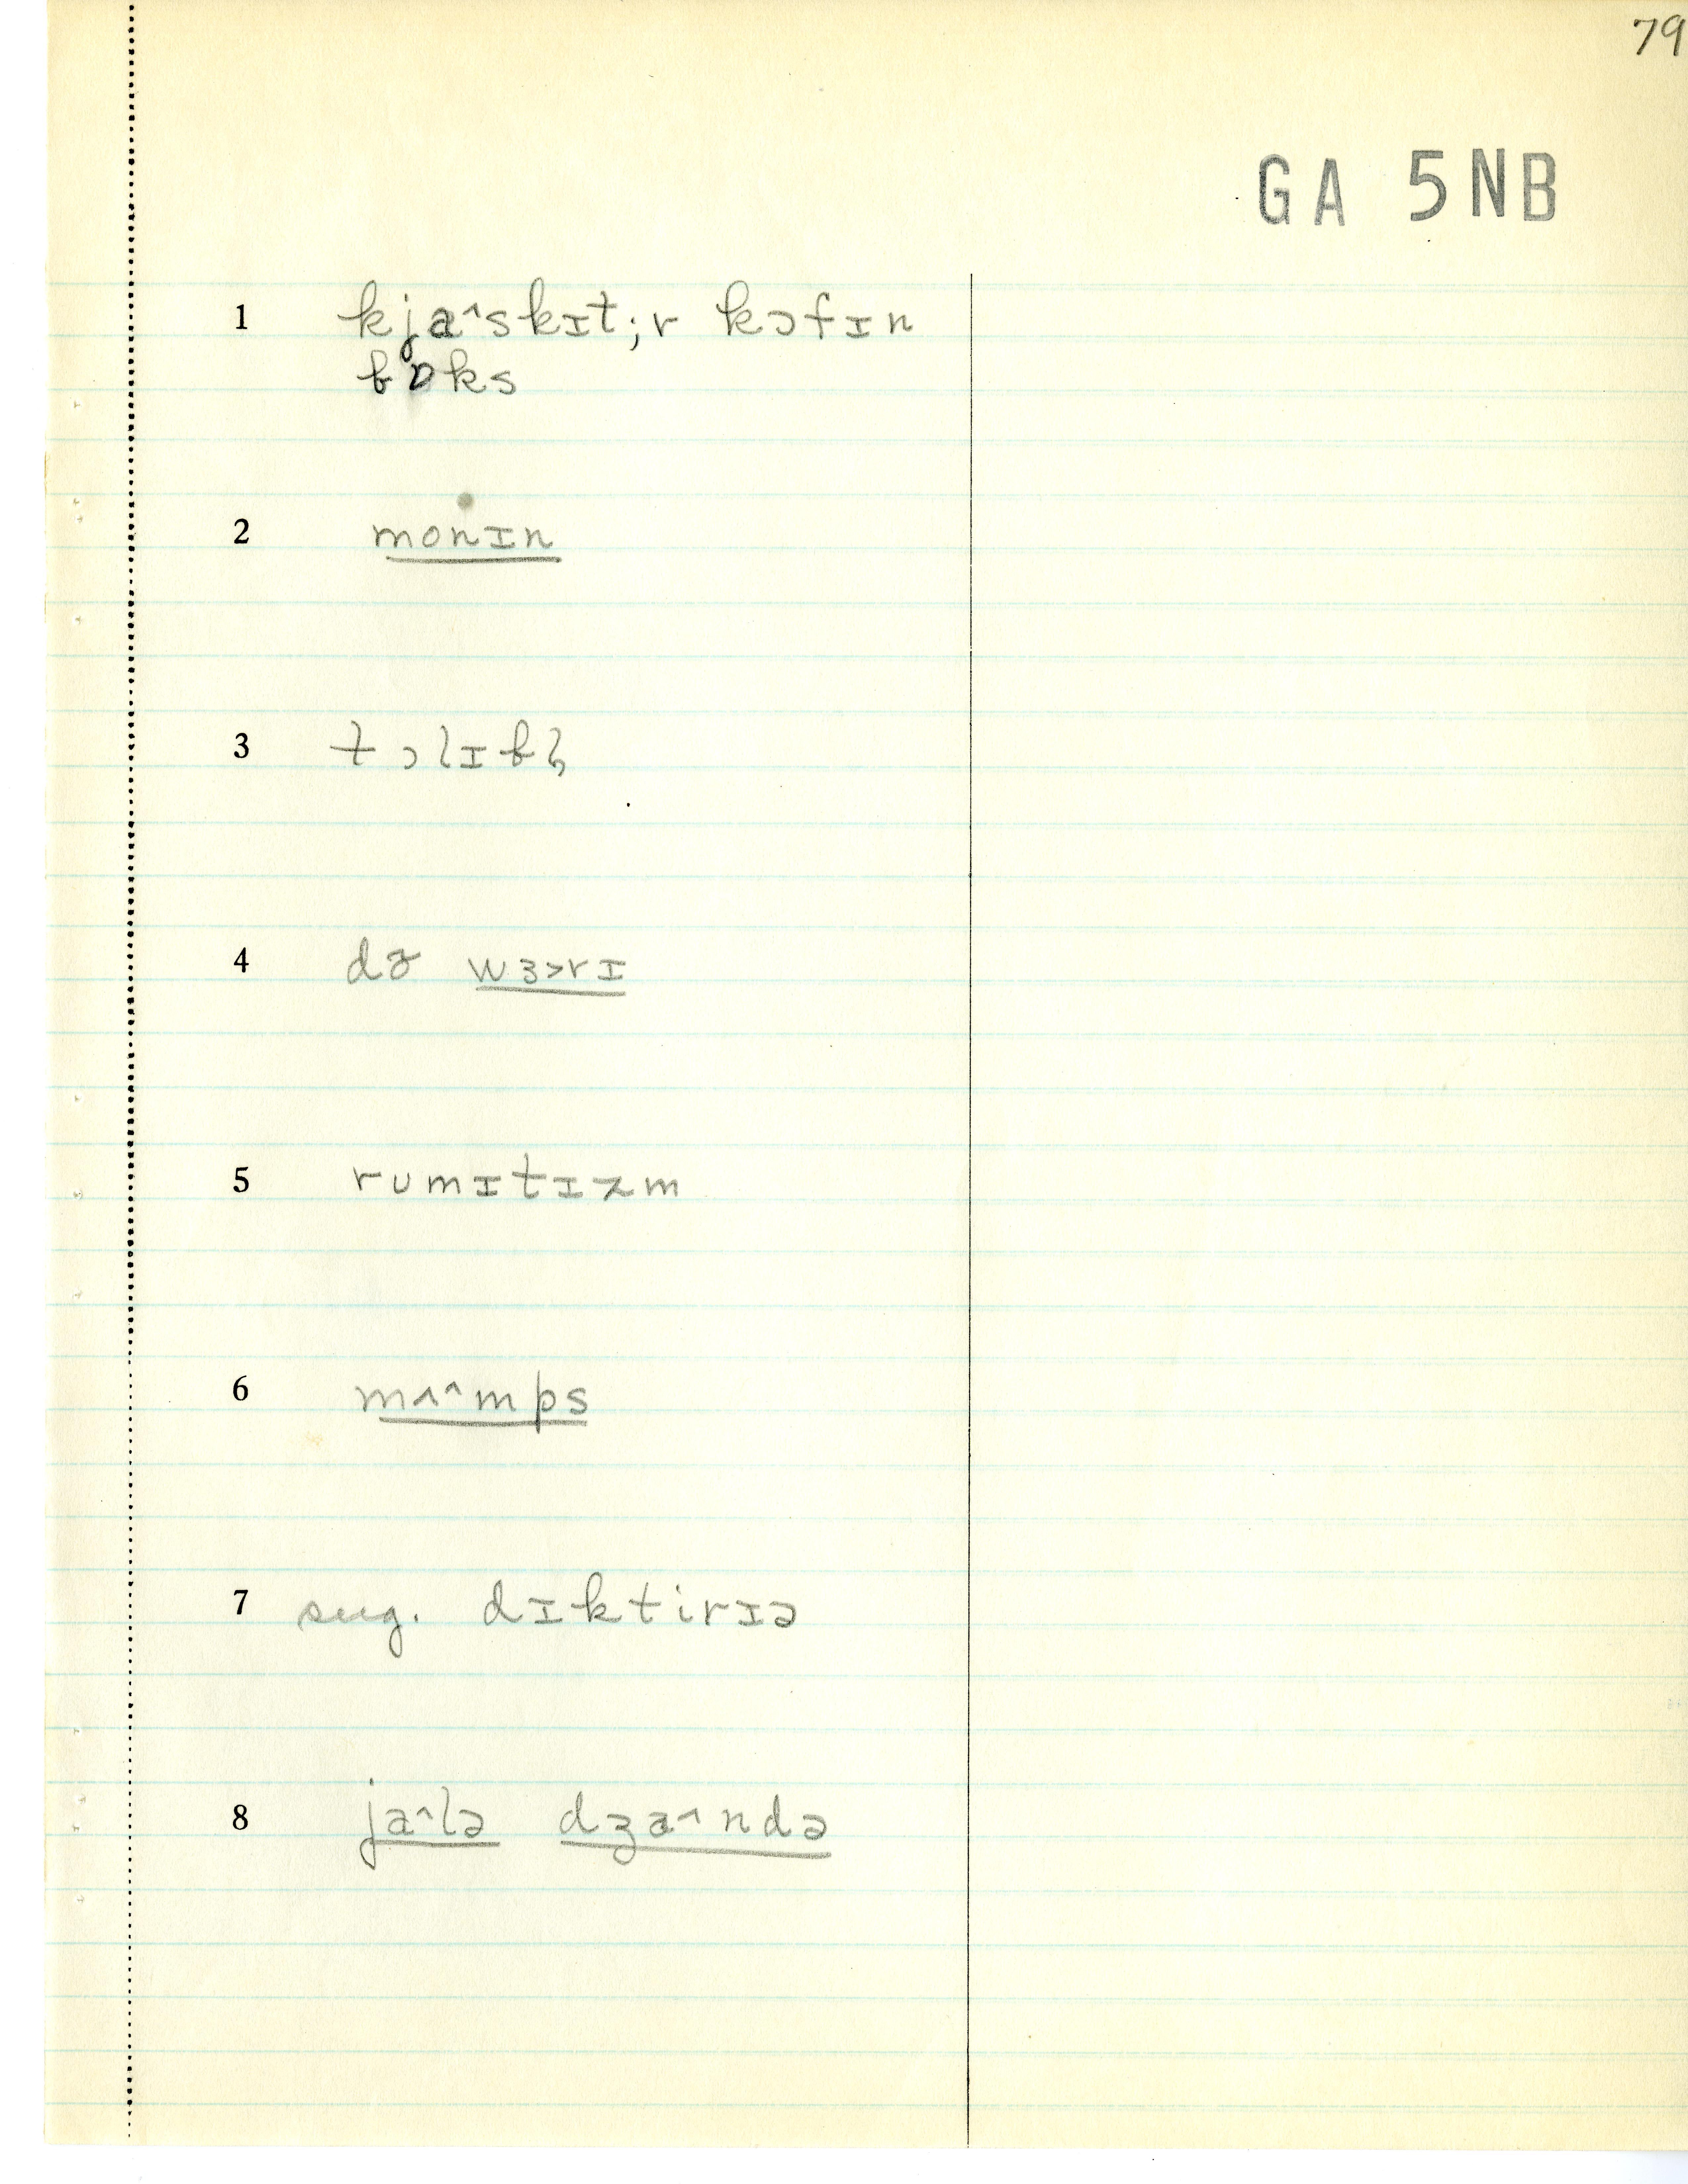 79
GA 5NB
1 kja^skɪt;r kɔfɪn
bɒks
2 monɪn
3 tɔlɪbl̩
4 də wɜ>rɪ
5 rumɪtɪzm
6 mʌ^mps
7 sug. dɪktirɪə
8 ja^lə dʒa^ndə